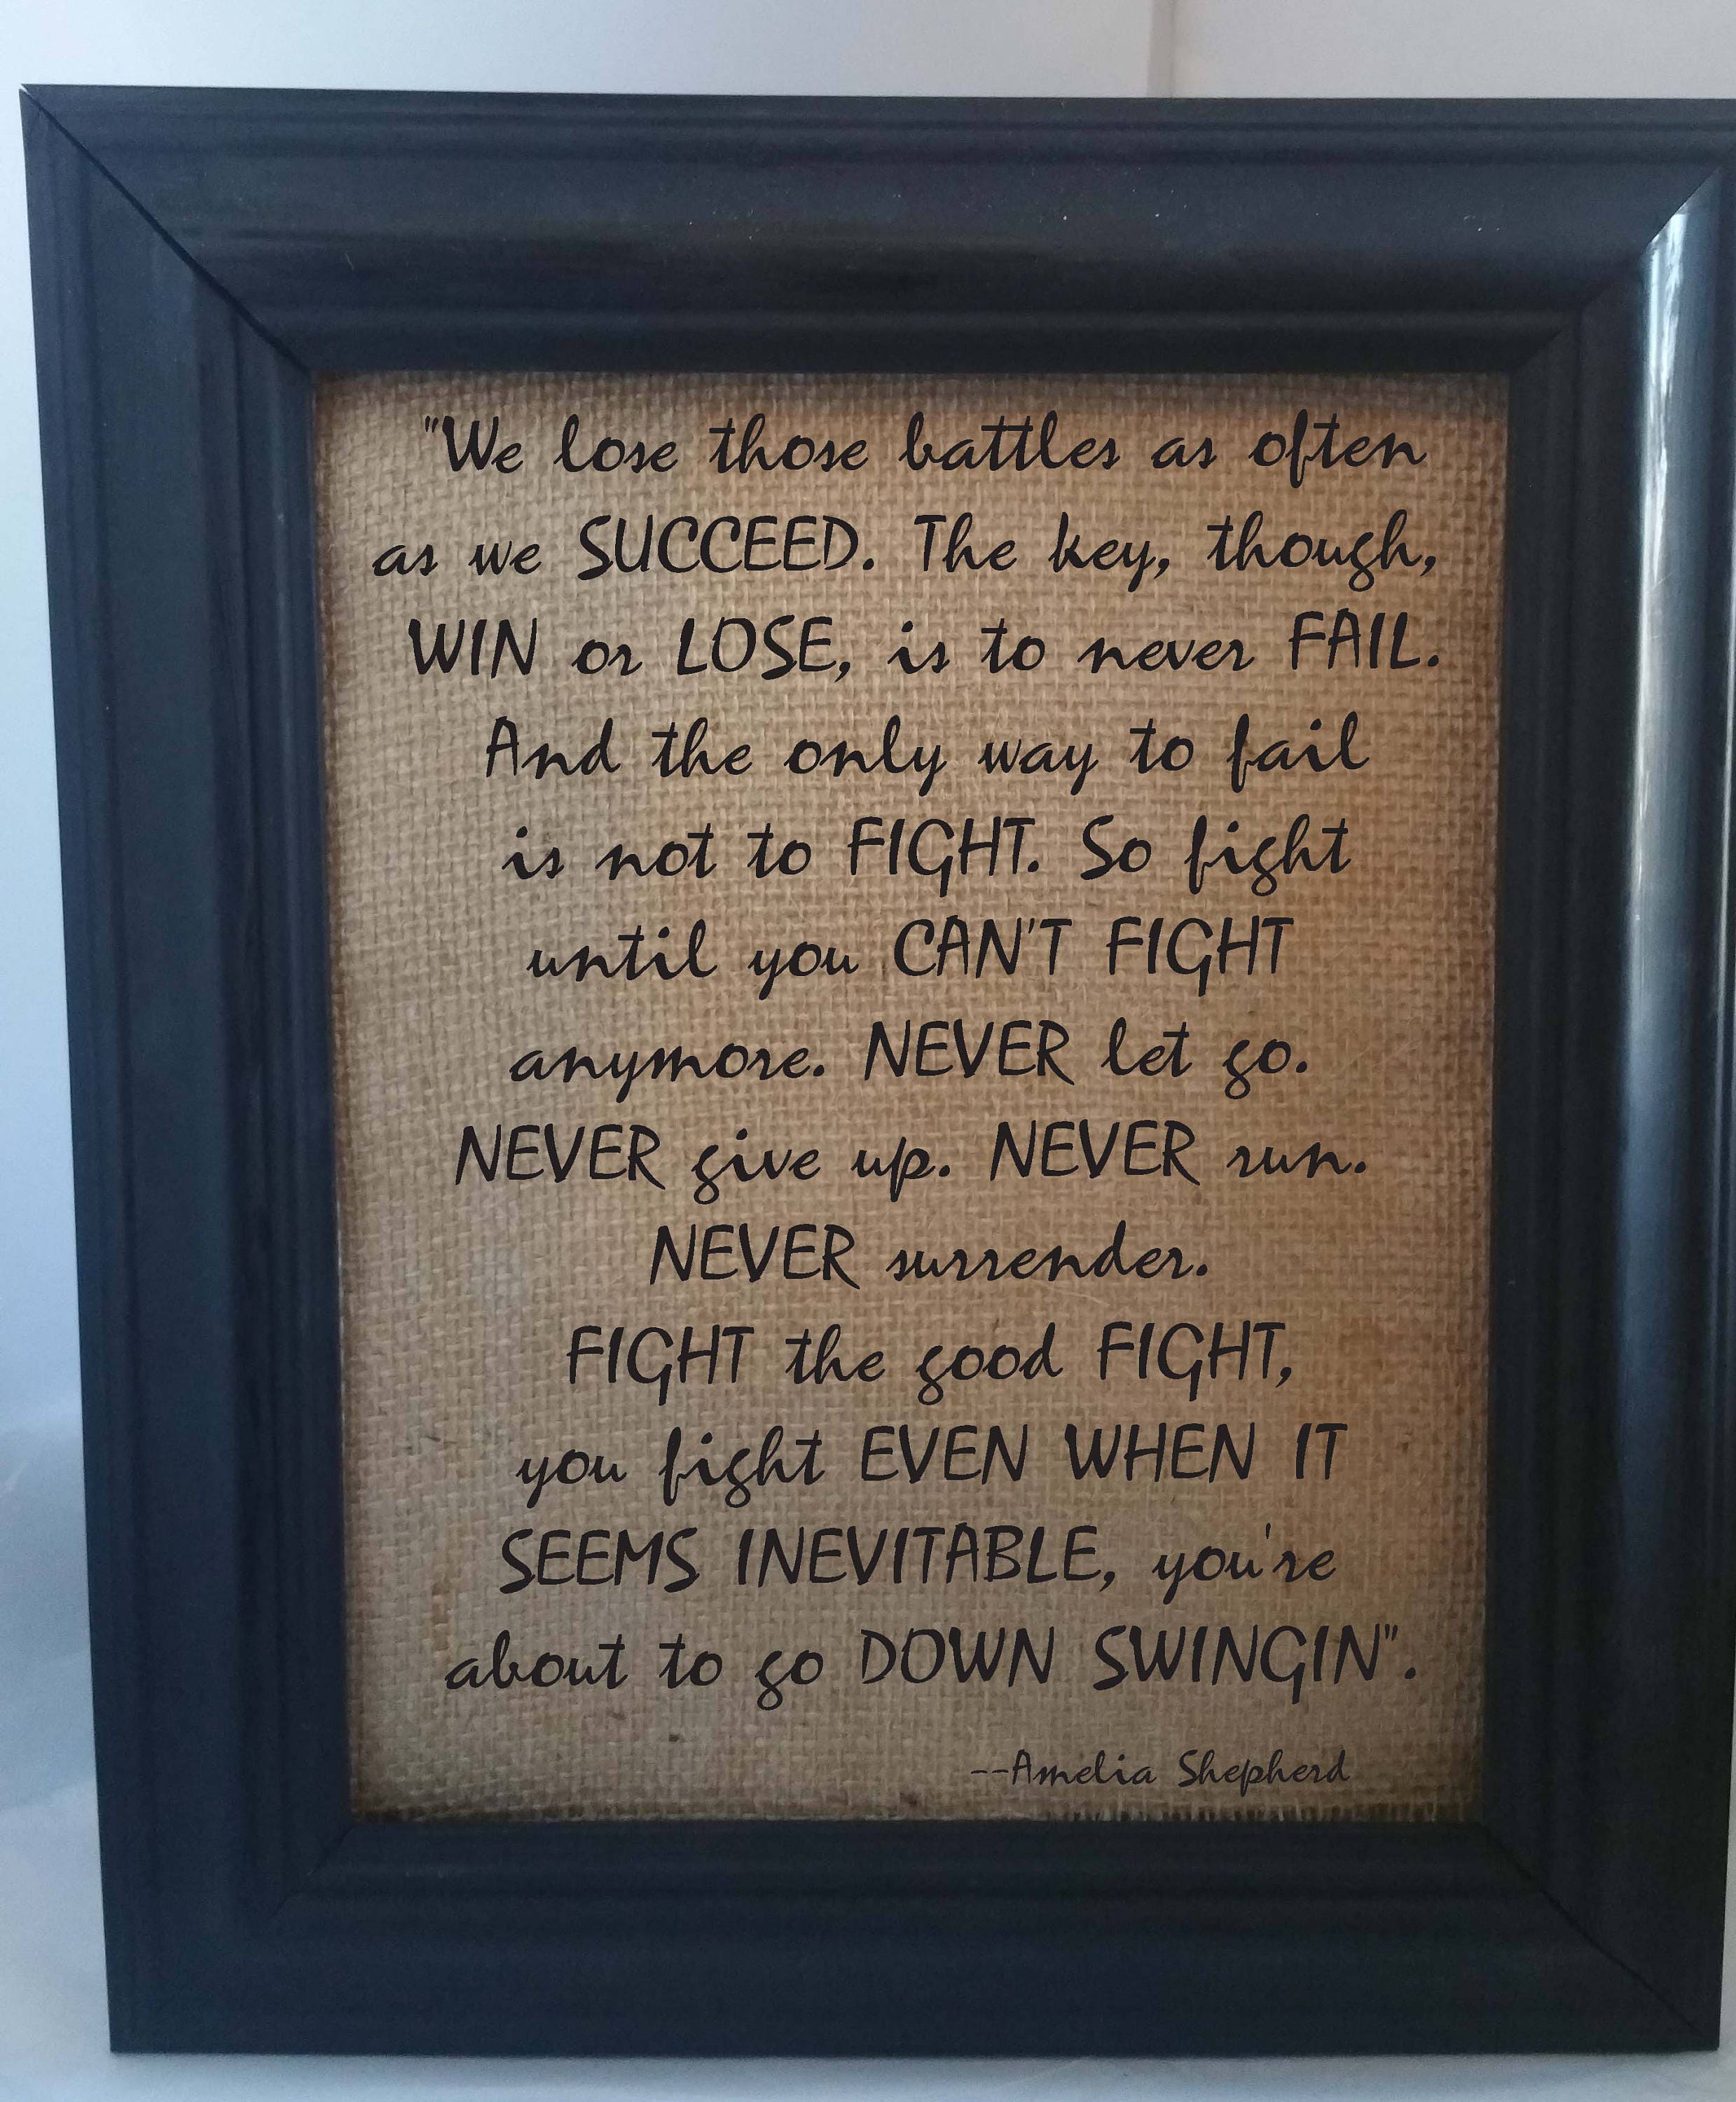 "We lose those battles as often
as we SUCCEED. The key, though,
WIN or LOSE, is to never FAIL.
And the only way to fail
is not to FIGHT. So fight
until you CAN'T FIGHT
anymore. NEVER let go.
NEVER give up. NEVER run.
NEVER surrender.
FIGHT the good FIGHT,
you fight EVEN WHEN IT
SEEMS INEVITABLE, you're
about to go DOWN SWINGIN".
--Amelia Shepherd